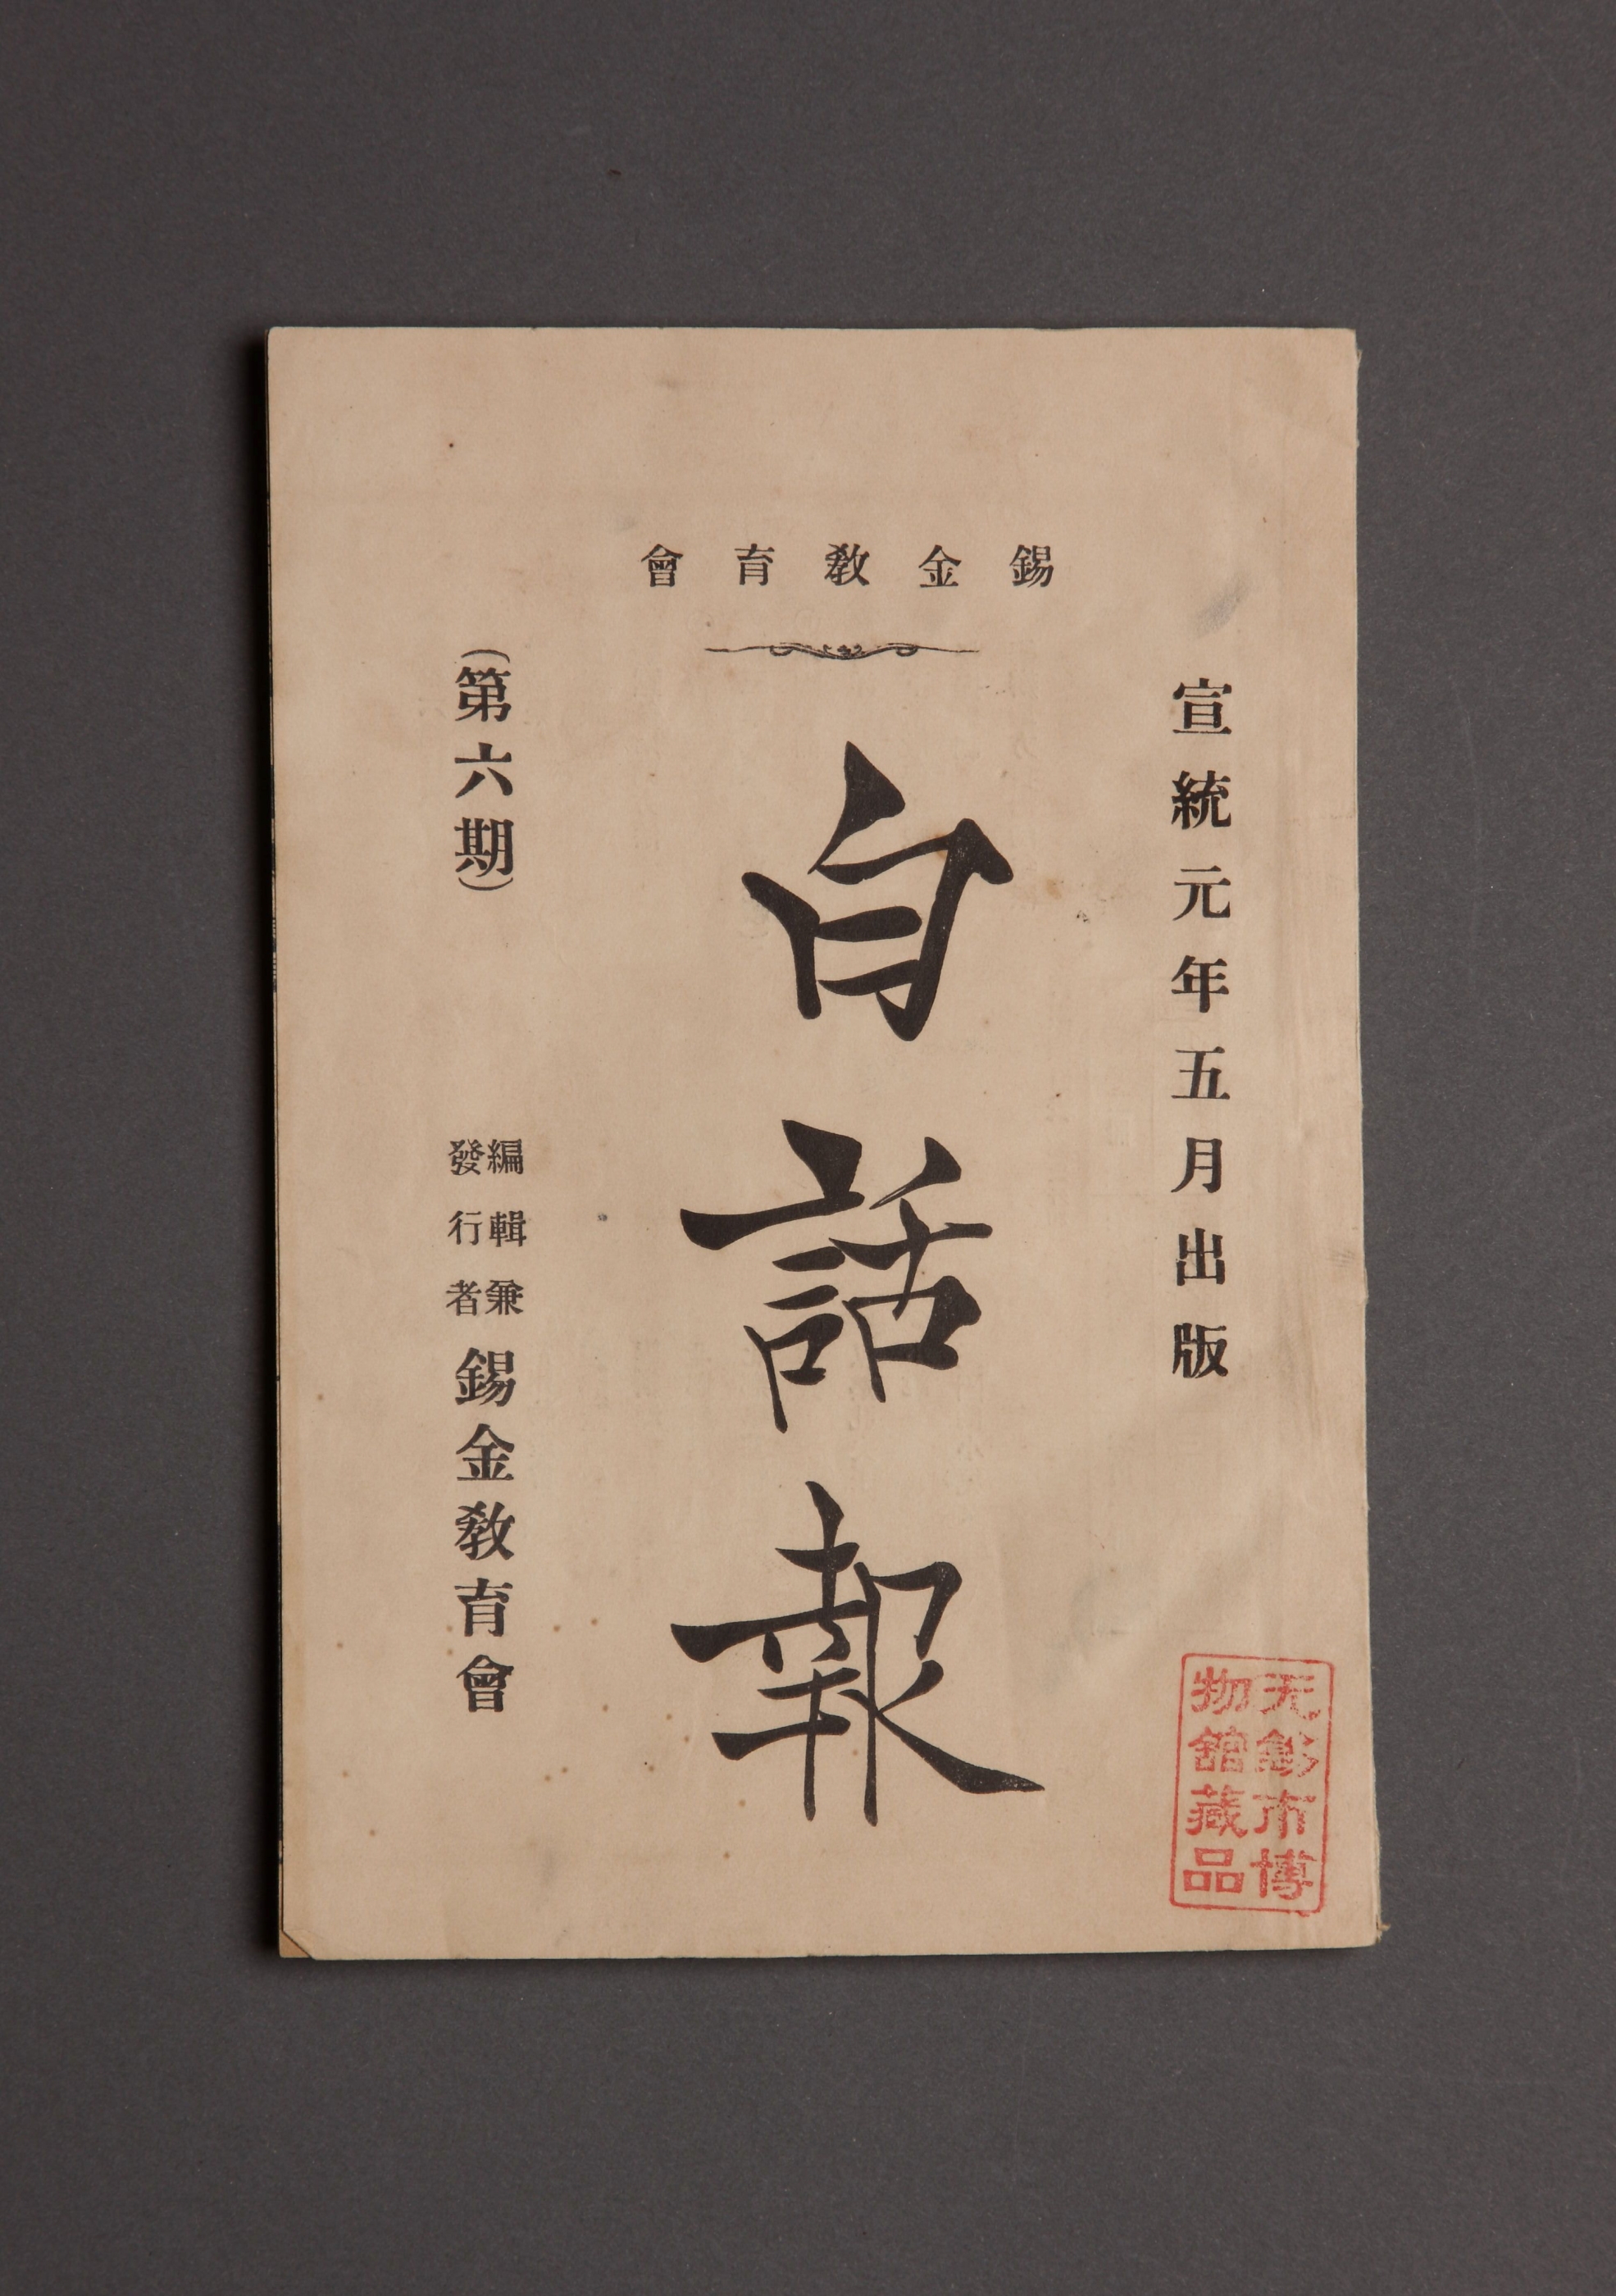 錫金教育會
宣統元年五月出版
白話報
（第六期）
編輯兼
發行者
錫金教育會
无錫市博
物館藏品